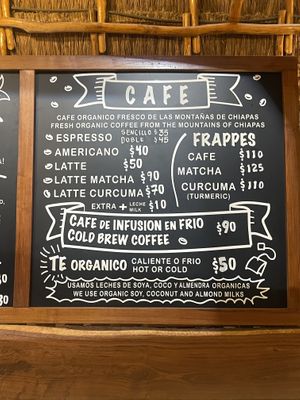 CAFE
CAFE ORGANICO FRESCO DE LAS MONTAÑAS DE CHIAPAS
FRESH ORGANIC COFFEE FROM THE MOUNTAINS OF CHIAPAS
• ESPRESSO SENCILLO $35
DOBLE $45
• AMERICANO $40
• LATTE $50
• LATTE MATCHA $90
• LATTE CURCUMA $70
EXTRA + LECHE MILK $10
FRAPPES
CAFE $110
MATCHA $125
CURCUMA $110
(TURMERIC)
CAFE DE INFUSION EN FRIO
COLD BREW COFFEE $90
TE ORGANICO CALIENTE O FRIO
HOT OR COLD $50
USAMOS LECHES DE SOYA, COCO Y ALMENDRA ORGANICAS
WE USE ORGANIC SOY, COCONUT AND ALMOND MILKS